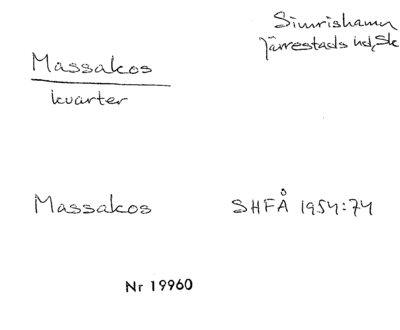 Simrishamn
Järrestads hd, Sk
Massakos
kvarter
Massakos SHFÅ 1954:74
Nr 19960